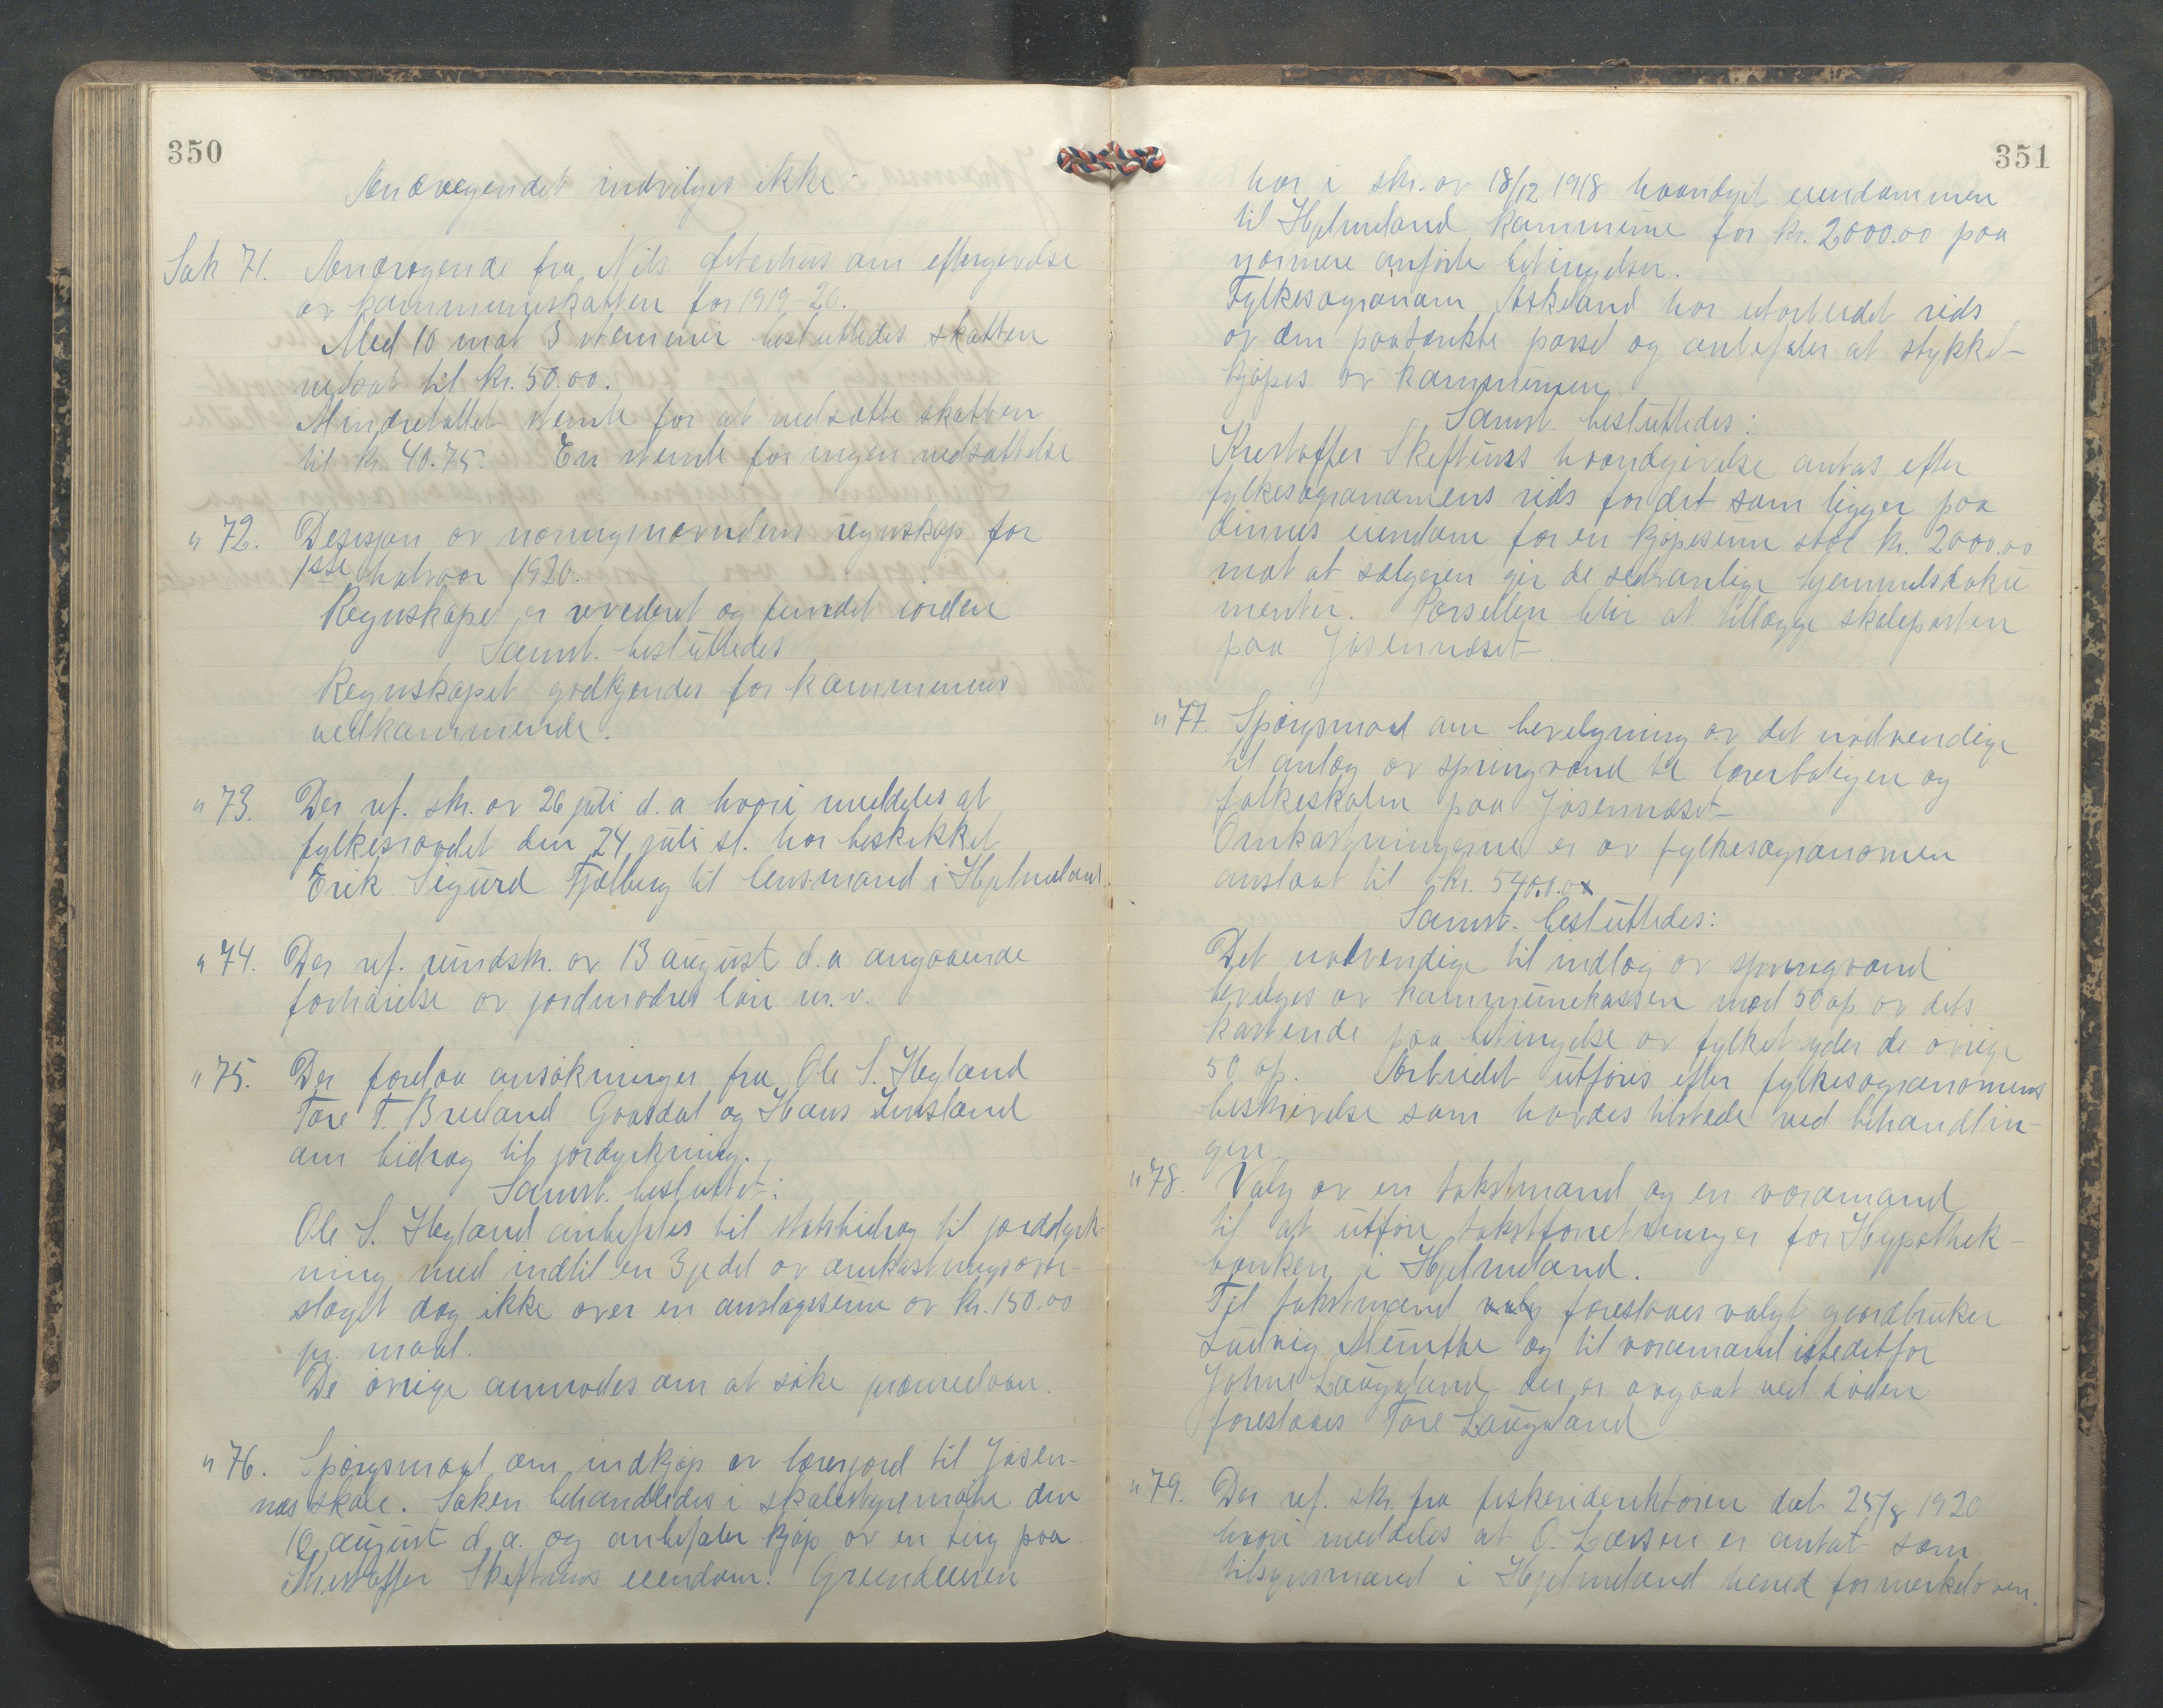 350
Andragendet indvilges ikke.
Sak 71. Andragende fra Nils om eftergivelse
av kommuneskatten for 1919-20.
Med 10 mot 3 stemmer besluttedes skatten
nedsat til kr. 50.00.
Mindretallet stemte for at nedsætte skatten
til kr. 40.75. En stemte for ingen nedsættelse
" 72. Desisjon av næringsnævndens regnskap for
1ste halvaar 1920.
Regnskapet er revederet og fundet iorden
Samst. besluttedes
Regnskapet godkjendes for kommunens
vedkommende.
" 73. Der ref. skr. av 26 juli d.a hvori meddeles at
fylkesraadet den 24 juli sl. har beskikket
Erik Sigurd Fjelberg til lensmand i Hjelmeland.
" 74. Der ref. rundskr. av 13 august d.a angaaende
forhøielse av jordmødres løn m.v.
" 75. Der forelaa ansøkninger fra Ole S. Høgland
Tore T. Breiland Graasdal og Hans
om bidrag til jordyrkning.
Samst. besluttet:
Ole S. Høgland anbefales til statsbidrag til jorddyrk-
ning med indtil en 3jedel av omkostningsover-
slaget dog ikke over en anslagssum av kr. 150.00
pr. maal.
De øvrige anmodes om at søke præmielaan.
" 76. Spørgsmaal om indkjøp av lærerjord til Jøsen-
næs skole. Saken behandledes i skolestyremøte den
10 august d.a. og anbefaler kjøp av en teig paa
Kristoffer Skeftuns eiendom. Grundeieren
351
har i skr. av 18/12 1918 haandgit eiendommen
til Hjelmeland kommune for kr. 2000.00 paa
nærmere anførte betingelser.
Fylkesagronom Askeland har utarbeidet rids
av den paatænkte parsel og anbefaler at stykket
kjøpes av kommunen.
Samst. besluttedes:
Kristoffer Skeftuns haandgivelse antas efter
fylkesagronomens rids for det som ligger paa
dennes eiendom for en kjøpesum stor kr. 2000.00
mot at sælgeren gir de sedvanlige hjemmelsdoku
menter. Parsellen blir at tillægge skoleparten
paa Jøsennæset
" 77. Spørgsmaal om bevilgning av det nødvendige
til anlæg av springvand til lærerboligen og
folkeskolen paa Jøsennæset
Omkostningerne er av fylkesagronomen
anslaat til kr. 5401.00
Samst. besluttedes:
Det nødvendige til indlæg av springvand
bevilges av kommunekassen med 50 % av dets
kostende paa betingelse av fylket yder de øvrige
50 %. Arbeidet utføres efter fylkesagronomens
beskrivelse som havdes tilstede ved behandlin-
gen
" 78. Valg av en takstmand og en varamand
til at utføre takstforretninger for Hypothek-
banken i Hjelmeland.
Til takstmand valg foreslaaes valgt gaardbruker
Ludvig Meinthe og til varamand istedetfor
Johne Laugaland der er avgaat ved døden
foreslaaes Tore Laugaland
" 79. Der ref. skr. fra fiskeridirektøren dat 25/8 1920
hvori meddeles at O. Larsen er antat som
tilsynsmand i Hjelmeland herred for merkeloven.